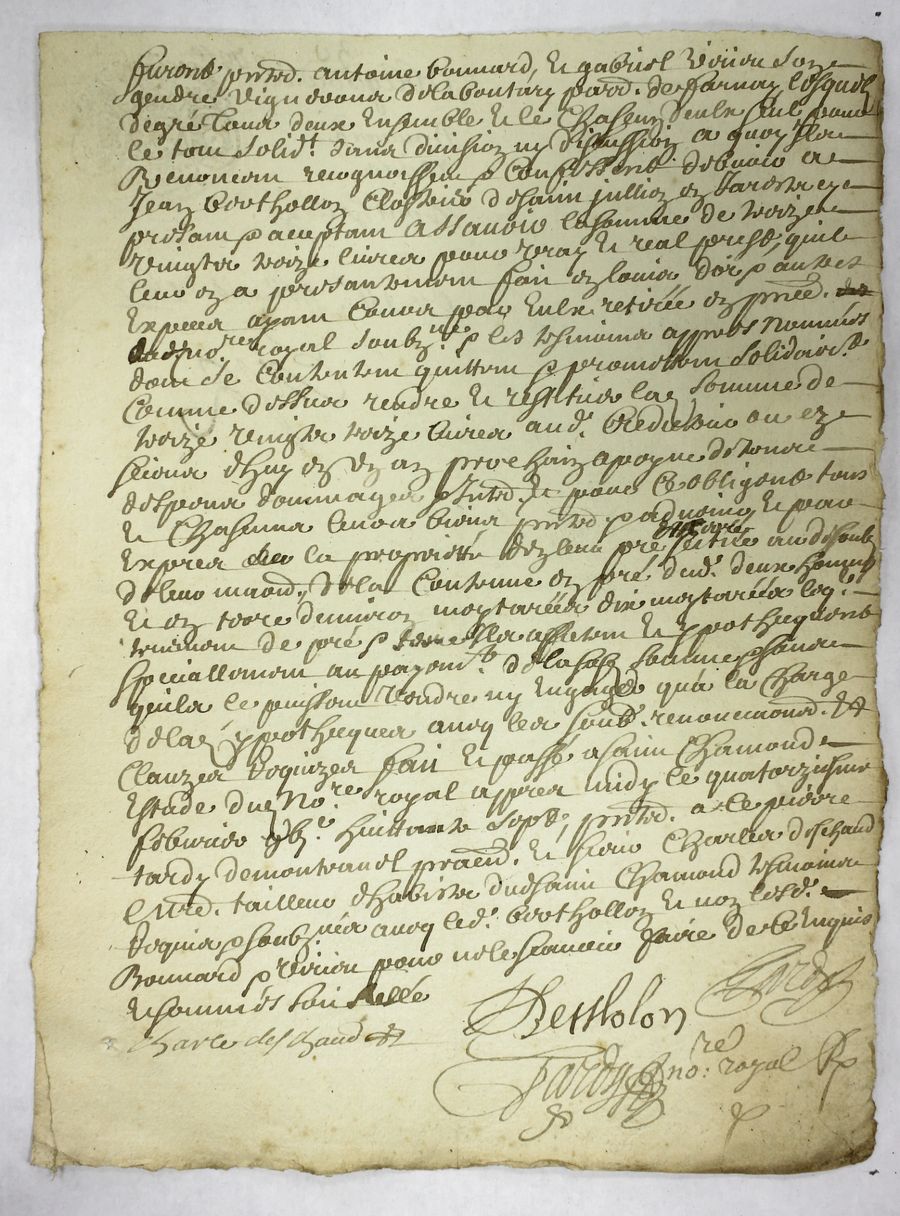 furent pntz. antoine bonnard, et gabriel virion son
gendre vignerons de la bontary parr. de farnay lesquels
de gré tous deux ensemble et le chascun deulx seul pour
le tout solidt. sans division ny discussion a quoy ils
Renoncent recognoissent & confessent debvoir a
Jean berthollon clostrier de saint jullien en Jarestz cy
present & acceptant assavoir la somme de treize
vingts treize livres pour vray et real prest, quil
leur en a presentement fait en louis dor & autres
Especes ayant cours par eulx retirée en pnce.
dud. nore. royal soubzne. & les tesmoins appres nommés
dont se contentent quittent & promettent solidairt.
comme dessus rendre et restituer lad. somme de
treize vingts treize livres aud. crediteur ou ez
siens dhuy en un an prochain a peyne de tous
despens dommages Intz. et pour ce obligent tous
et chascuns leurs biens pntz. & advenir et par
expres la proprietté dez leur pré et terre au dessoubz
de leur maison, de la contenue en pré de deux hommes
et en terre denviron mestarées dix mestarées
tiennent de pré & terre ils affectent et ypothequent
speciallement au payemt. de lad. somme sans
quils le puissent vendre ny engager qua la charge
de lad. ypotheque avec les soubz. renoncements. &
clauzes requizes fait et passé a saint chamond
estude du no.re royal appres midy le quatorziesme
febvrier gbic. huittante sept, pntz. a ce pierre
tardy de montravel pratn. et sieur Charles deschaud
md. tailleur dhabits dud saint chamond tesmoins
requis & soubznés avec led. berthollon et non lesd.
Bonnard & virion pour ne le scavoir faire de ce enquis
et sommés soit scellé
charle deschaud
Berthollon
Tardy
Tardy no:re royal